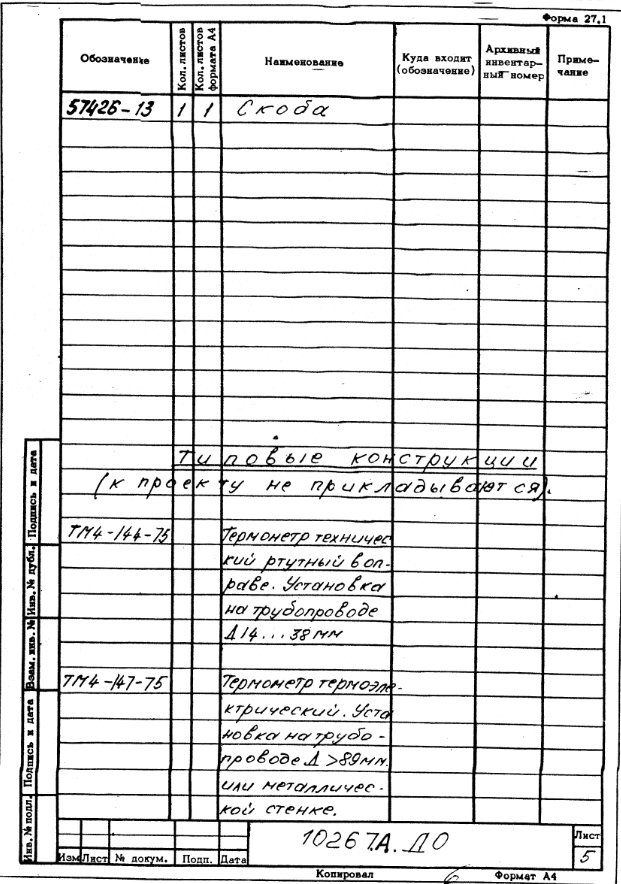 Форма 27.1
Обозначение Кол. листов Кол. листов формата А4 Наименование Куда входит (обозначение) Архивный инвентарный номер Примечание
57426-13 1 1 Скоба
Типовые конструкции
(к проекту не прикладываются).
ТМ4-144-75 Термометр техничес
кий ртутный в оп-
раве. Установка
на трубопроводе
Д14...38мм
ТМ4-147-75 Термометр термоэле-
ктрический. Уста
новка на трубо-
проводе Д >89мм.
или металличес-
кой стенке.
Инв. № подл. Подпись и дата Взам. инв. № Инв. № дубл. Подпись и дата
10267А. ДО
Лист
5
Изм Лист № докум. Подп. Дата
Копировал 6 Формат А4